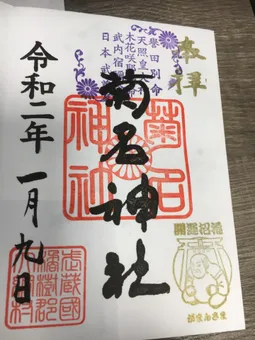 奉拝
誉田別命
天照皇
木花咲耶
武内宿
日本武
菊名神社
菊名
神社
開運招福
令和二年一月九日
武蔵國
橘樹郡